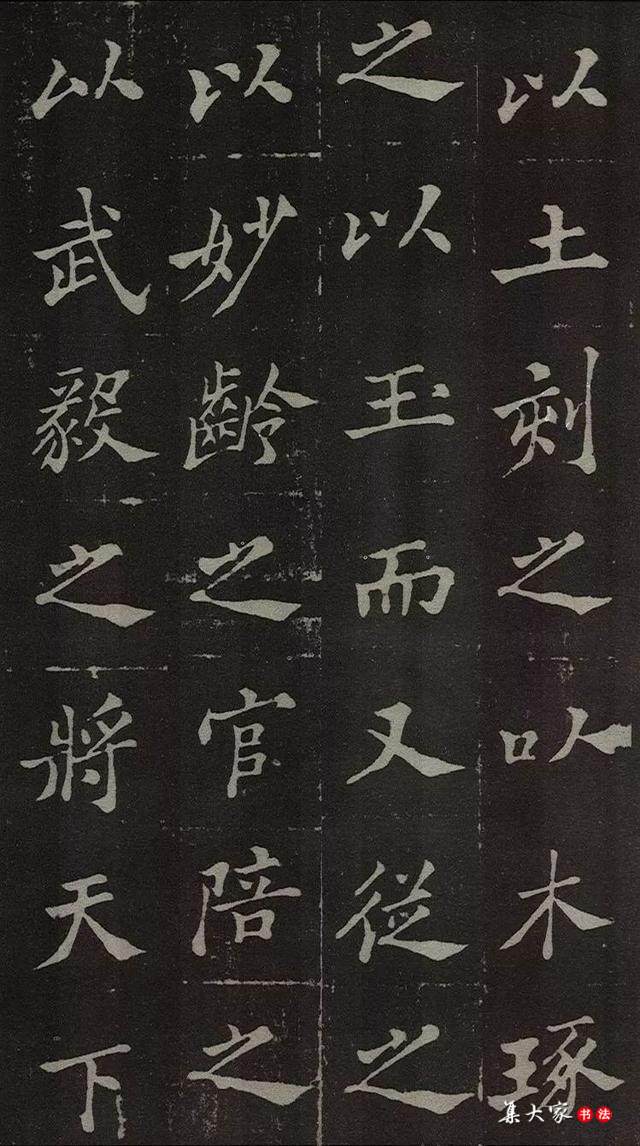 以土刻之以木琢
之以玉而又從之
以妙齡之官陪之
以武毅之將天下
集大家书法